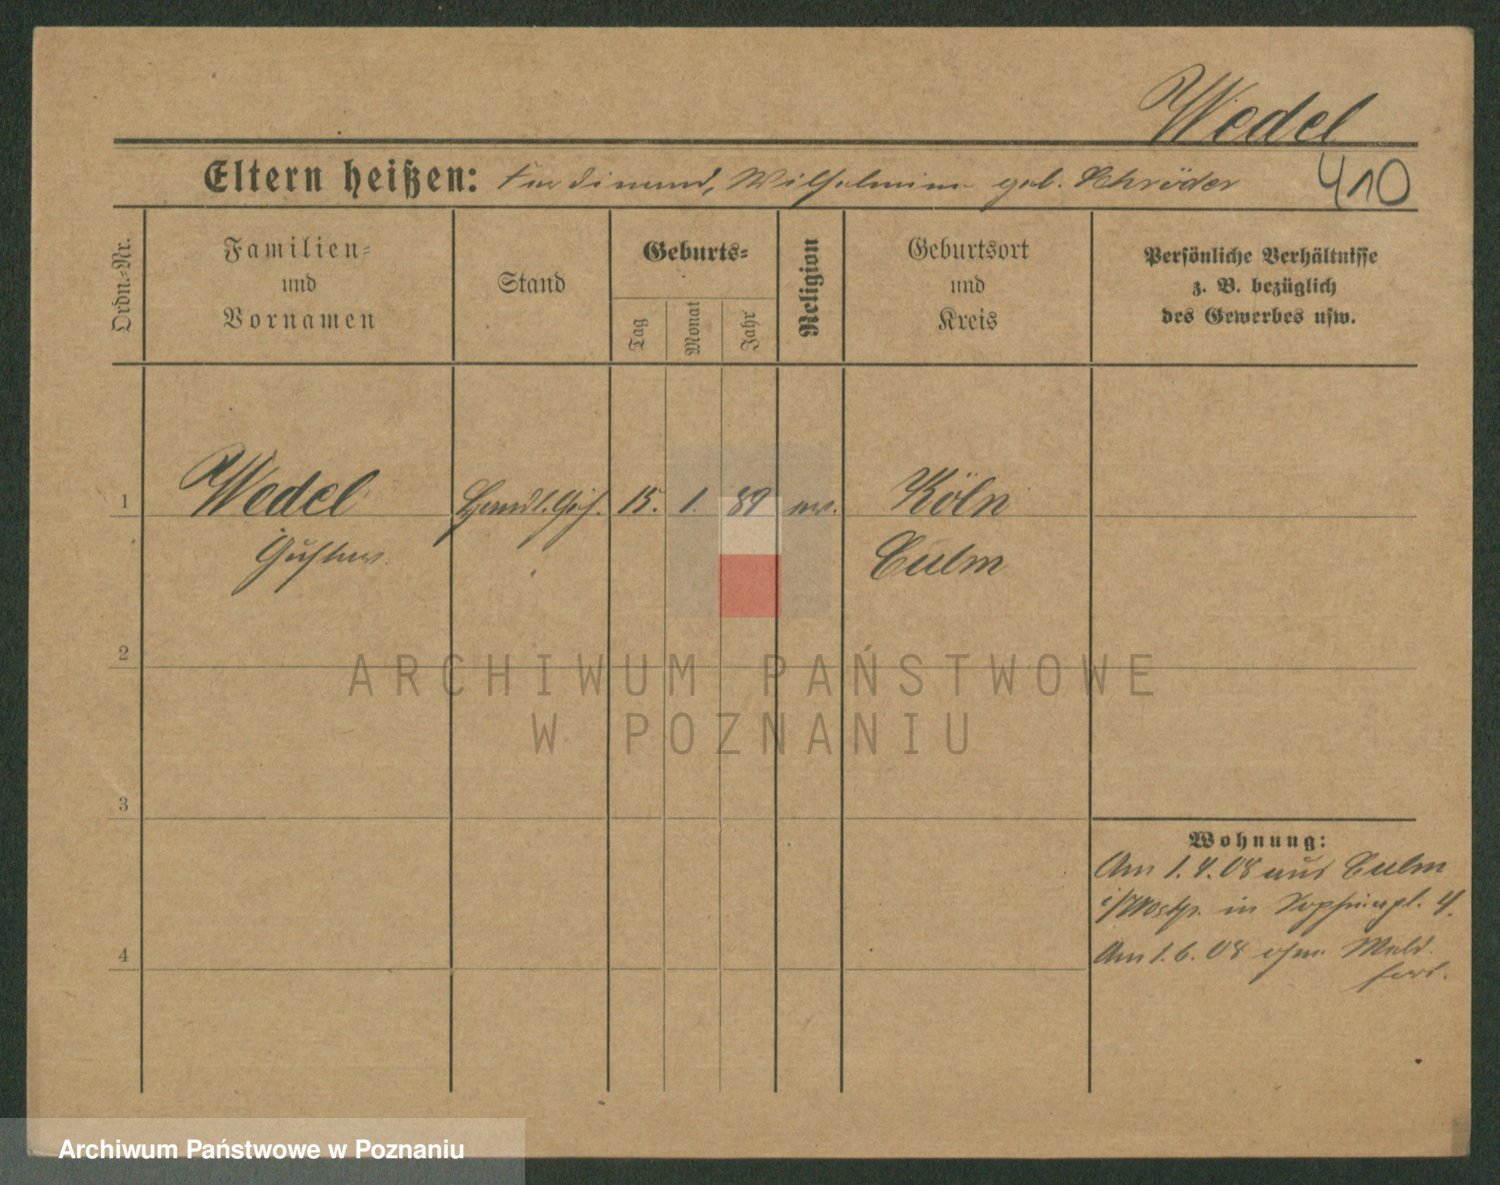 Wedel
Eltern heißen: Ferdinand, Wilhelmine geb. Schröder 410
Ordn.-Nr.
Familien-
und
Vornamen
Stand
Geburts-
Tag
Monat
Jahr
Religion
Geburtsort
und
Kreis
Persönliche Verhältnisse
z. B. bezüglich
des Gewerbes usw.
1 Wedel Handl. Geh. 15. 1. 89 ev. Köln
Gustav Culm
2
ARCHIWUM PAŃSTWOWE
W POZNANIU
3
Wohnung:
Am 1.4.08 aus Culm
i/Westpr. in 4.
4
Am 1.6.08 ohne Meld.
fort.
Archiwum Państwowe w Poznaniu